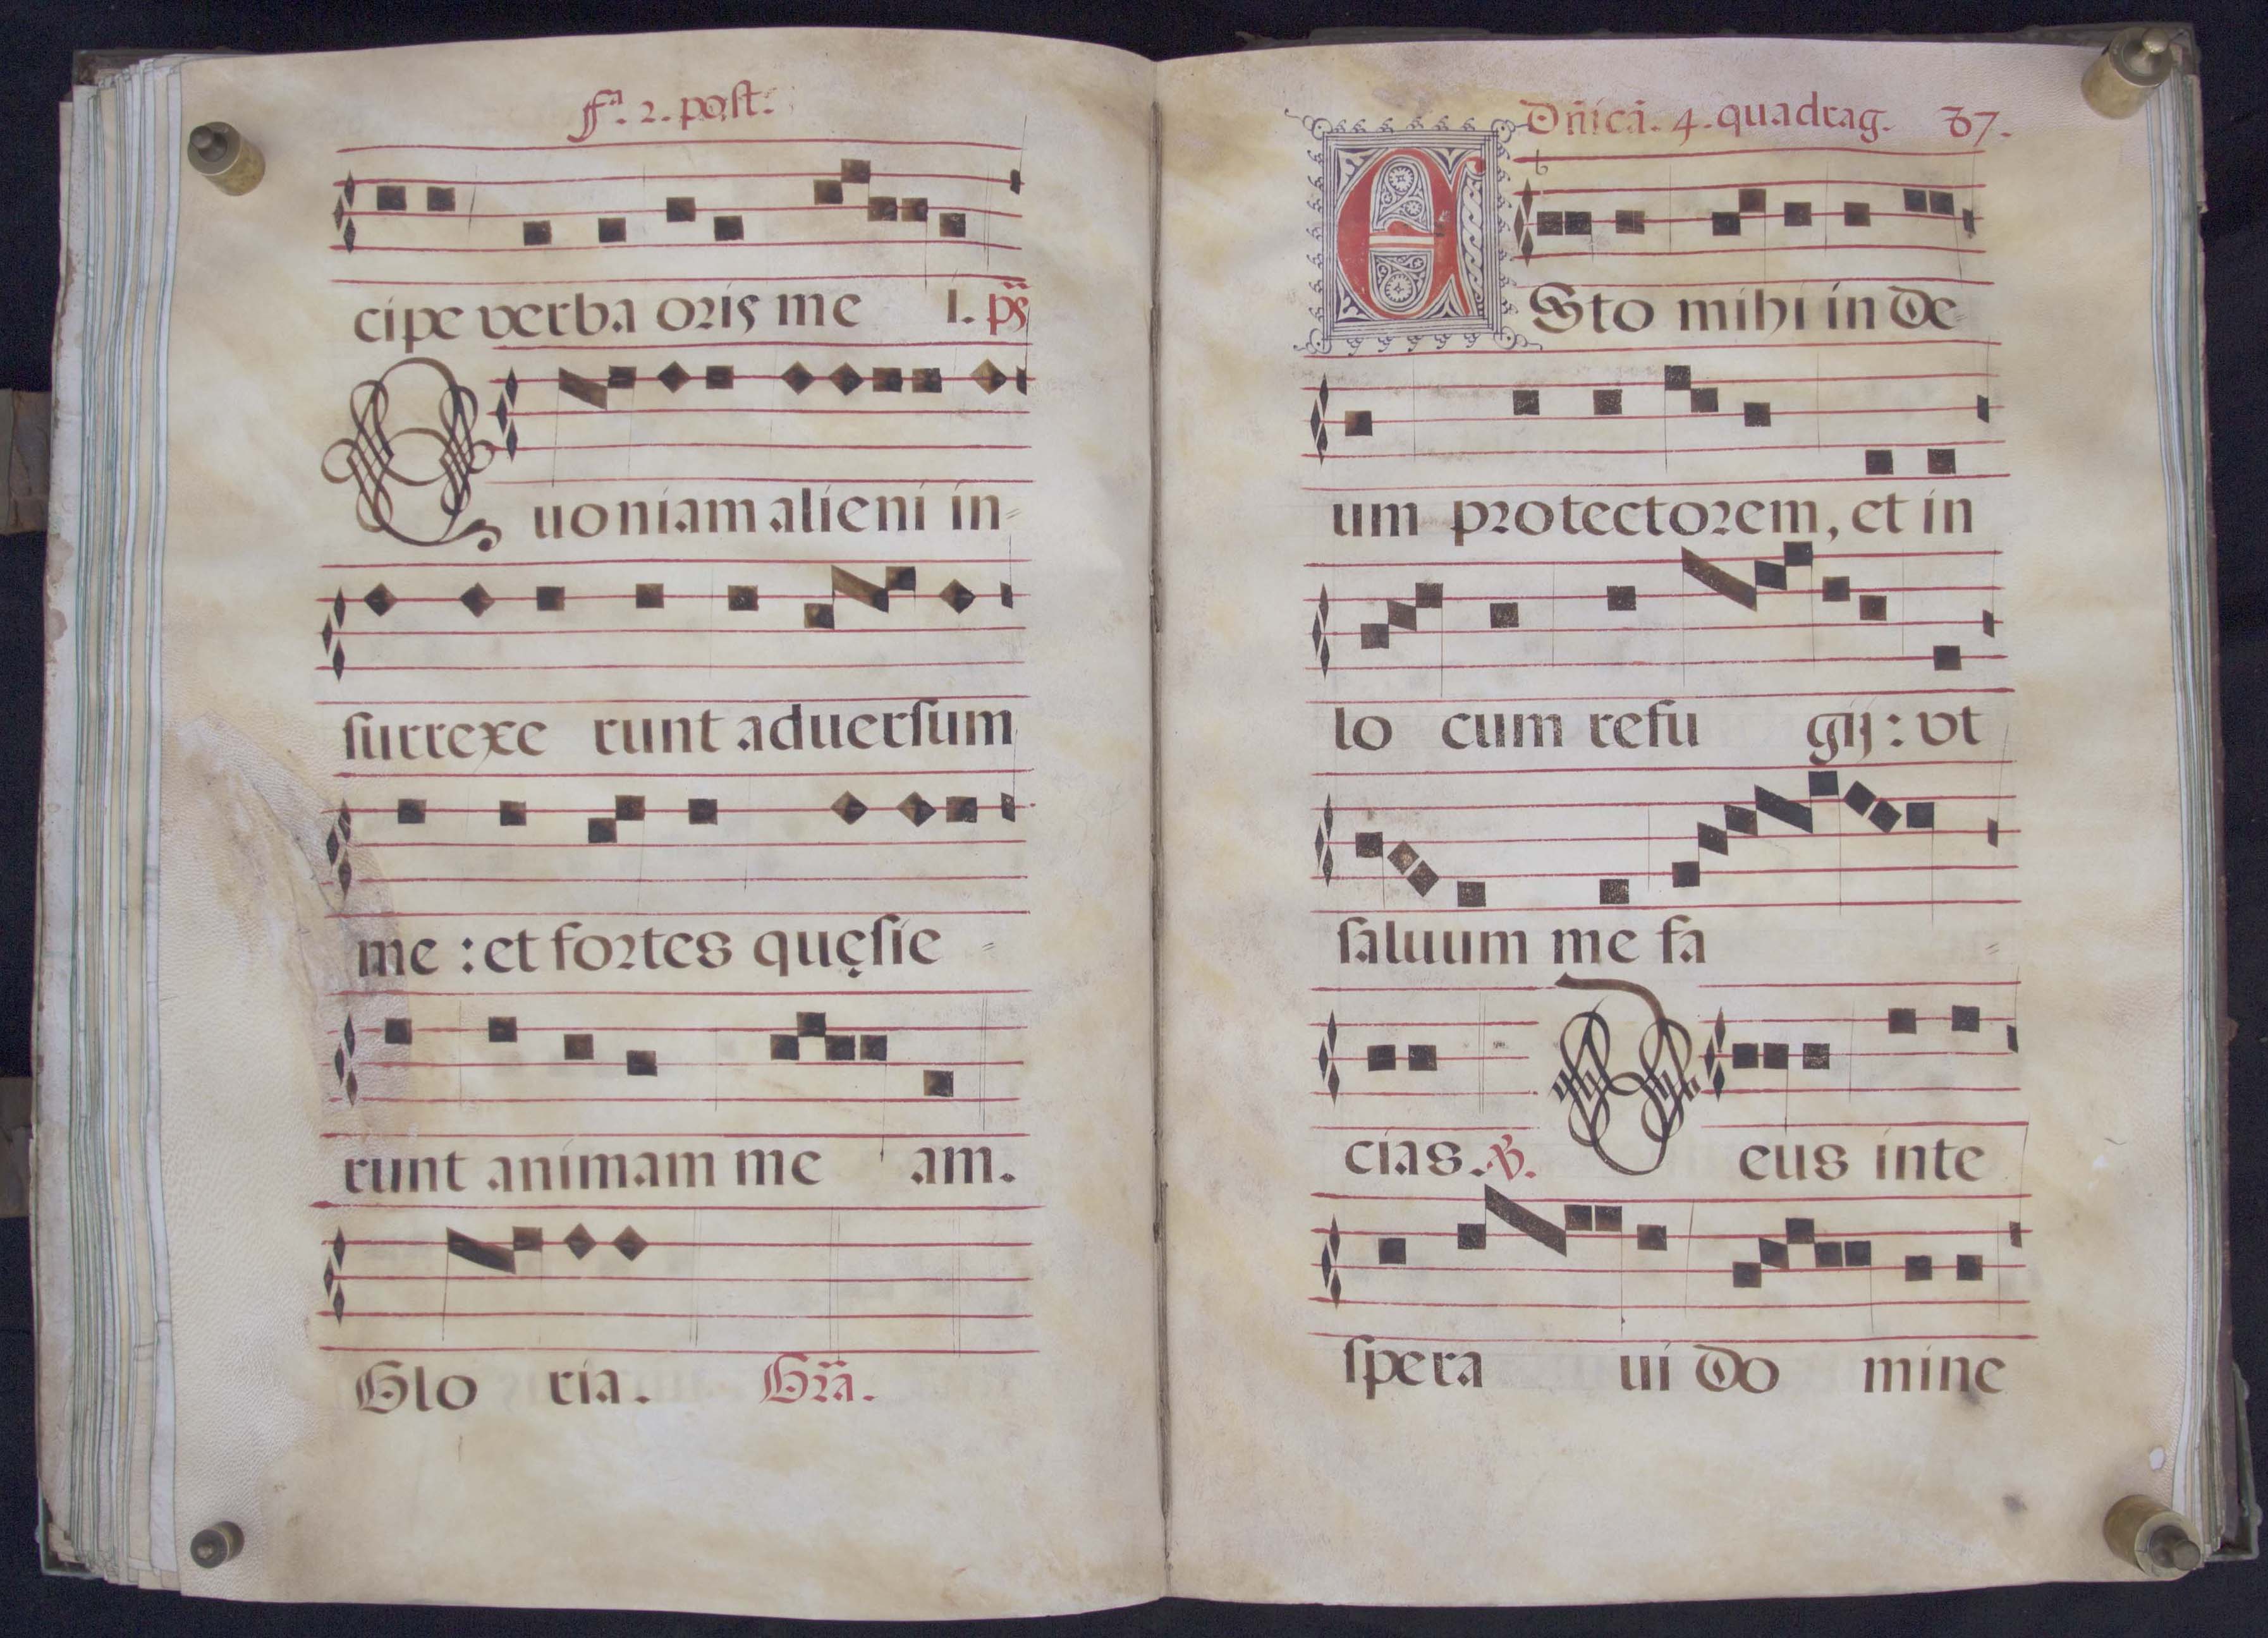 fª. 2. post.
cipe verba oris me i. ps̃
Quoniam alieni in=
surrexe runt aduersum
me : et fortes quęsie =
runt animam me am.
Glo ria. Grã.
Dñicã. 4. quadrag. 37.
ESto mihi in de=
um protectorem, et in
lo cum refu gij : vt
saluum me fa =
cias. ℣. Deus in te
spera ui do mine